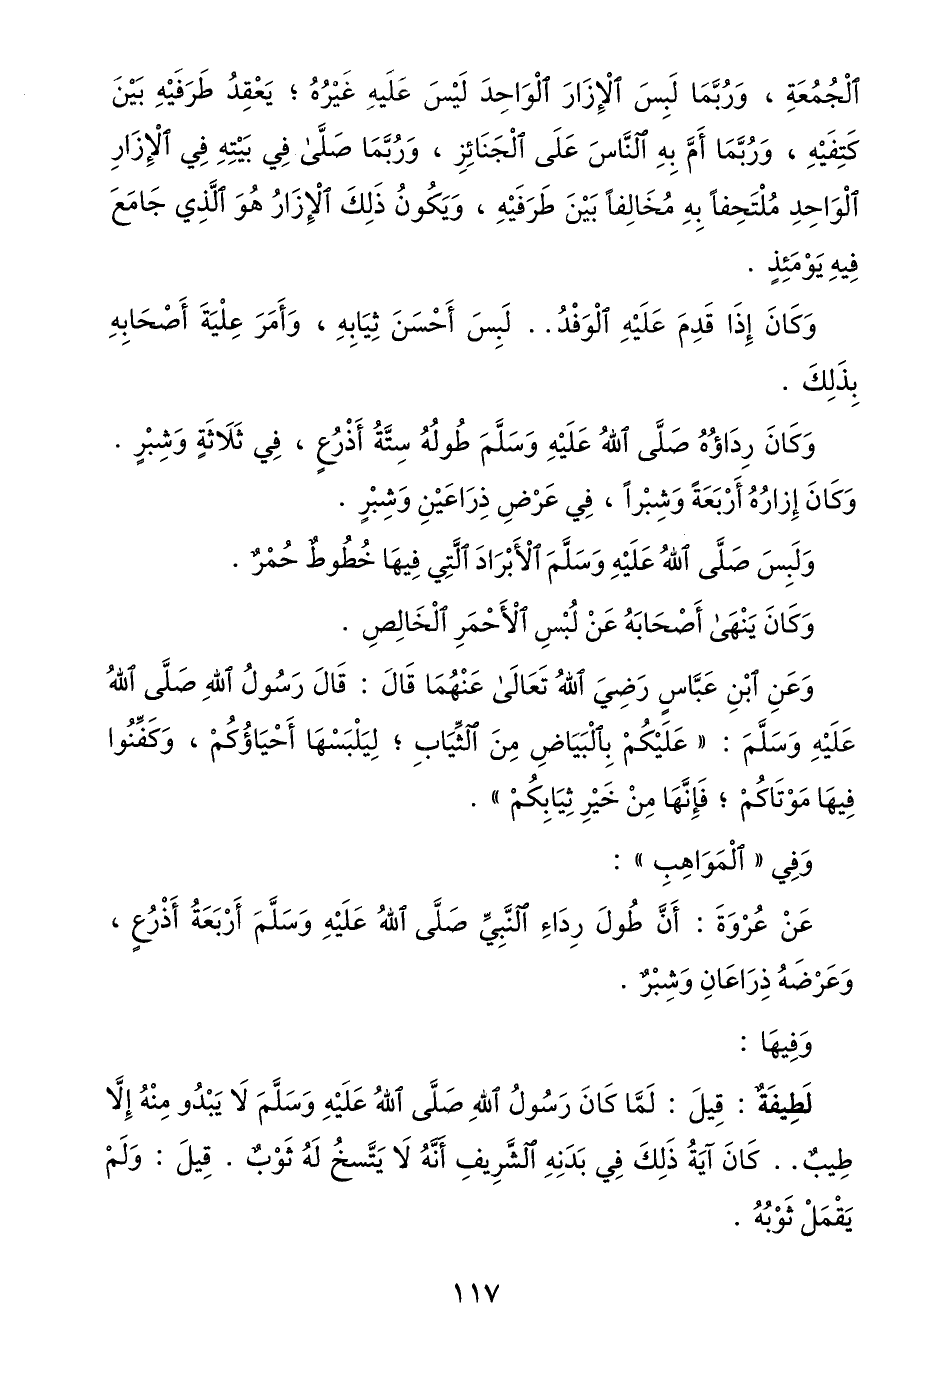 ٱلْجُمُعَةِ ، وَرُبَّمَا لَبِسَ ٱلْإِزَارَ ٱلْوَاحِدَ لَيْسَ عَلَيهِ غَيْرُهُ ؛ يَعْقِدُ طَرَفَيْهِ بَيْنَ
كَتِفَيْهِ ، وَرُبَّمَا أَمَّ بِهِ ٱلنَّاسَ عَلَى ٱلْجَنَائِزِ ، وَرُبَّمَا صَلَّىٰ فِي بَيْتِهِ فِي ٱلْإِزَارِ
ٱلْوَاحِدِ مُلْتَحِفاً بِهِ مُخَالِفاً بَيْنَ طَرَفَيْهِ ، وَيَكُونُ ذَلِكَ ٱلْإِزَارُ هُوَ ٱلَّذِي جَامَعَ
فِيهِ يَوْمَئِذٍ .
وَكَانَ إِذَا قَدِمَ عَلَيْهِ ٱلْوَفْدُ . . لَبِسَ أَحْسَنَ ثِيَابِهِ ، وَأَمَرَ عِلْيَةَ أَصْحَابِهِ
بِذَلِكَ .
وَكَانَ رِدَاؤُهُ صَلَّى ٱللهُ عَلَيْهِ وَسَلَّمَ طُولُهُ سِتَّةُ أَذْرُعٍ ، فِي ثَلَاثَةٍ وَشِبْرٍ .
وَكَانَ إِزارُهُ أَرْبَعَةً وَشِبْراً ، فِي عَرْضِ ذِرَاعَيْنِ وَشِبْرٍ .
وَلَبِسَ صَلَّى ٱللهُ عَلَيْهِ وَسَلَّمَ ٱلْأَبْرَادَ ٱلَّتِي فِيهَا خُطُوطٌ حُمْرٌ .
وَكَانَ يَنْهَىٰ أَصْحَابَهُ عَنْ لُبْسِ ٱلْأَحْمَرِ ٱلْخَالِصِ .
وَعَنِ ٱبْنِ عَبَّاسٍ رَضِيَ ٱللهُ تَعَالَىٰ عَنْهُمَا قَالَ : قَالَ رَسُولُ ٱللهِ صَلَّى ٱللهُ
عَلَيْهِ وَسَلَّمَ : « عَلَيْكُمْ بِٱلْبَيَاضِ مِنَ ٱلثِّيَابِ ؛ لِيَلْبَسْهَا أَحْيَاؤُكُمْ ، وَكَفِّنُوا
فِيهَا مَوْتَاكُمْ ؛ فَإِنَّهَا مِنْ خَيْرِ ثِيَابِكُمْ » .
وَفِي « ٱلْمَوَاهِبِ » :
عَنْ عُرْوَةَ : أَنَّ طُولَ رِدَاءِ ٱلنَّبِيِّ صَلَّى ٱللهُ عَلَيْهِ وَسَلَّمَ أَرْبَعَةُ أَذْرُعٍ ،
وَعَرْضَهُ ذِرَاعَانِ وَشِبْرٌ .
وَفِيهَا :
لَطِيفَةٌ : قِيلَ : لَمَّا كَانَ رَسُولُ ٱللهِ صَلَّى ٱللهُ عَلَيْهِ وَسَلَّمَ لَا يَبْدُو مِنْهُ إِلَّا
طِيبٌ . . كَانَ آيَةُ ذَلِكَ فِي بَدَنِهِ ٱلشَّرِيفِ أَنَّهُ لَا يَتَّسخُ لَهُ ثَوْبٌ . قِيلَ : وَلَمْ
يَقْمَلْ ثَوْبُهُ .
١١٧